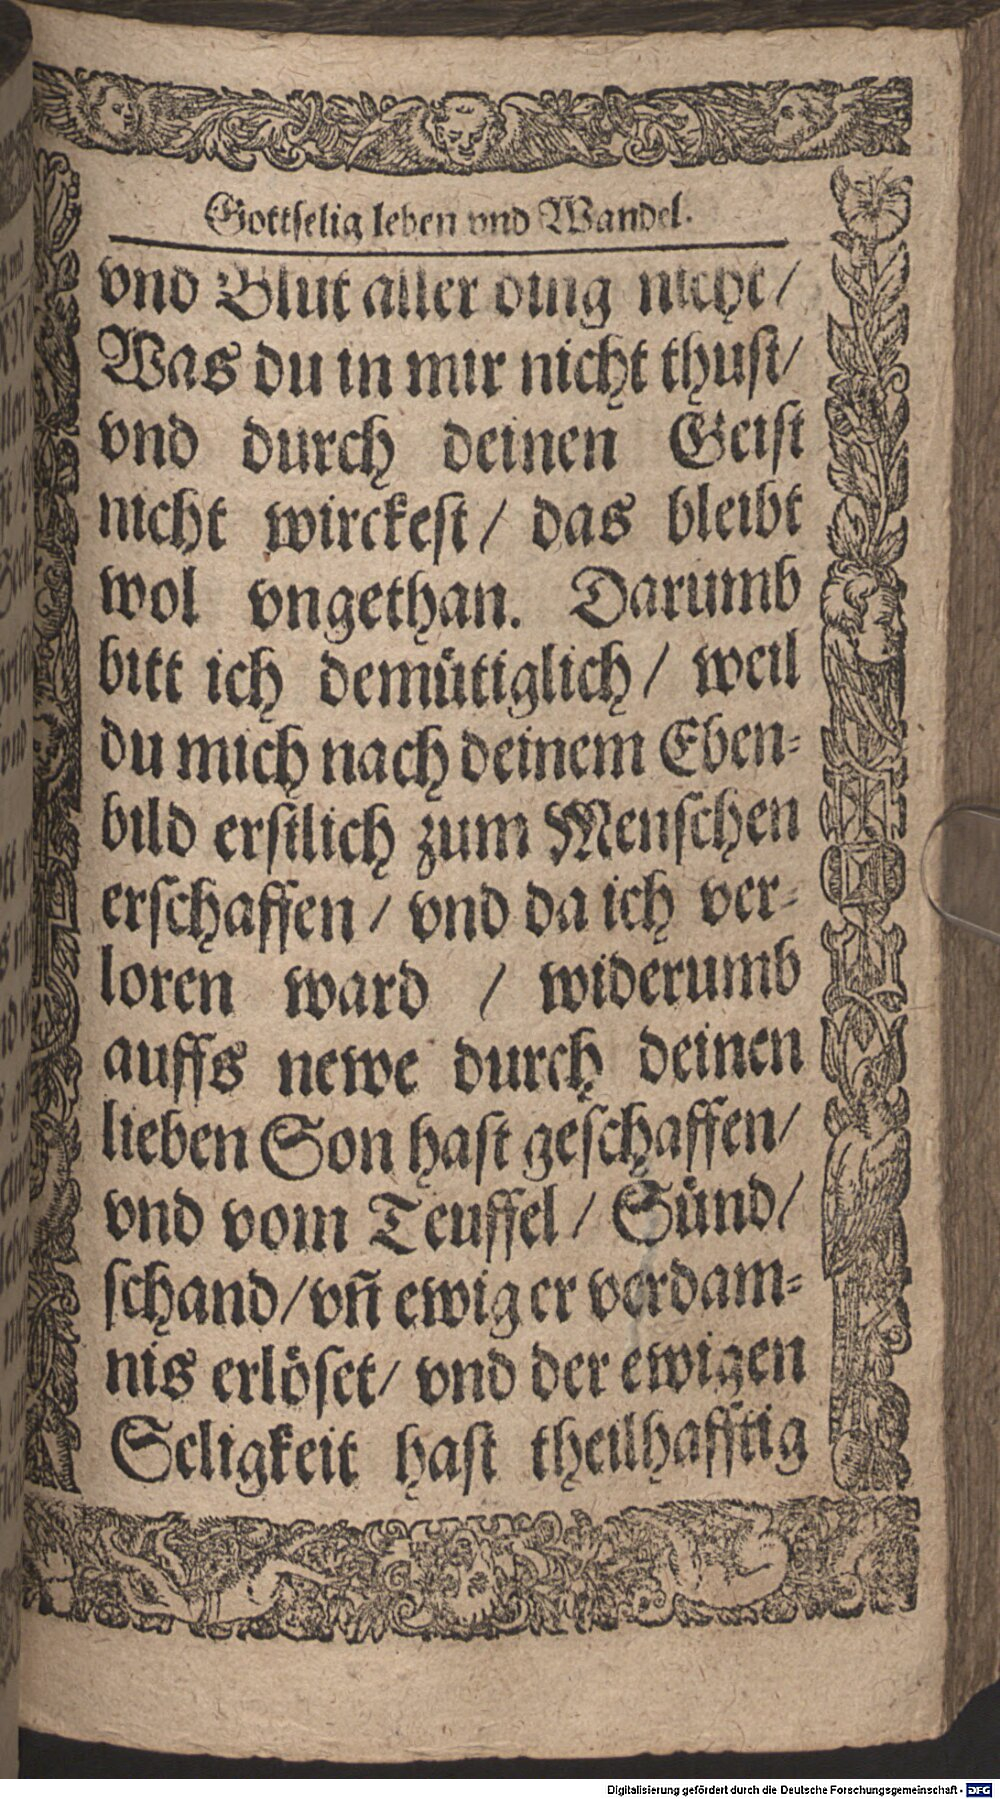 Gottselig leben vnd Wandel.
vnd Blut aller ding nicht/
Was du in mir nicht thust/
vnd durch deinen Geist
nicht wirckest/ das bleibt
wol vngethan. Darumb
bitt ich demütiglich/ weil
du mich nach deinem Eben-
bild erstlich zum Menschen
erschaffen/ vnd da ich ver-
loren ward / widerumb
auffs newe durch deinen
lieben Son hast geschaffen/
vnd vom Teuffel/ Sünd/
schand/vn̄ ewiger verdam-
nis erlöset/ vnd der ewigen
Seligkeit hast theilhafftig
Digitalisierung gefördert durch die Deutsche Forschungsgemeinschaft - DFG